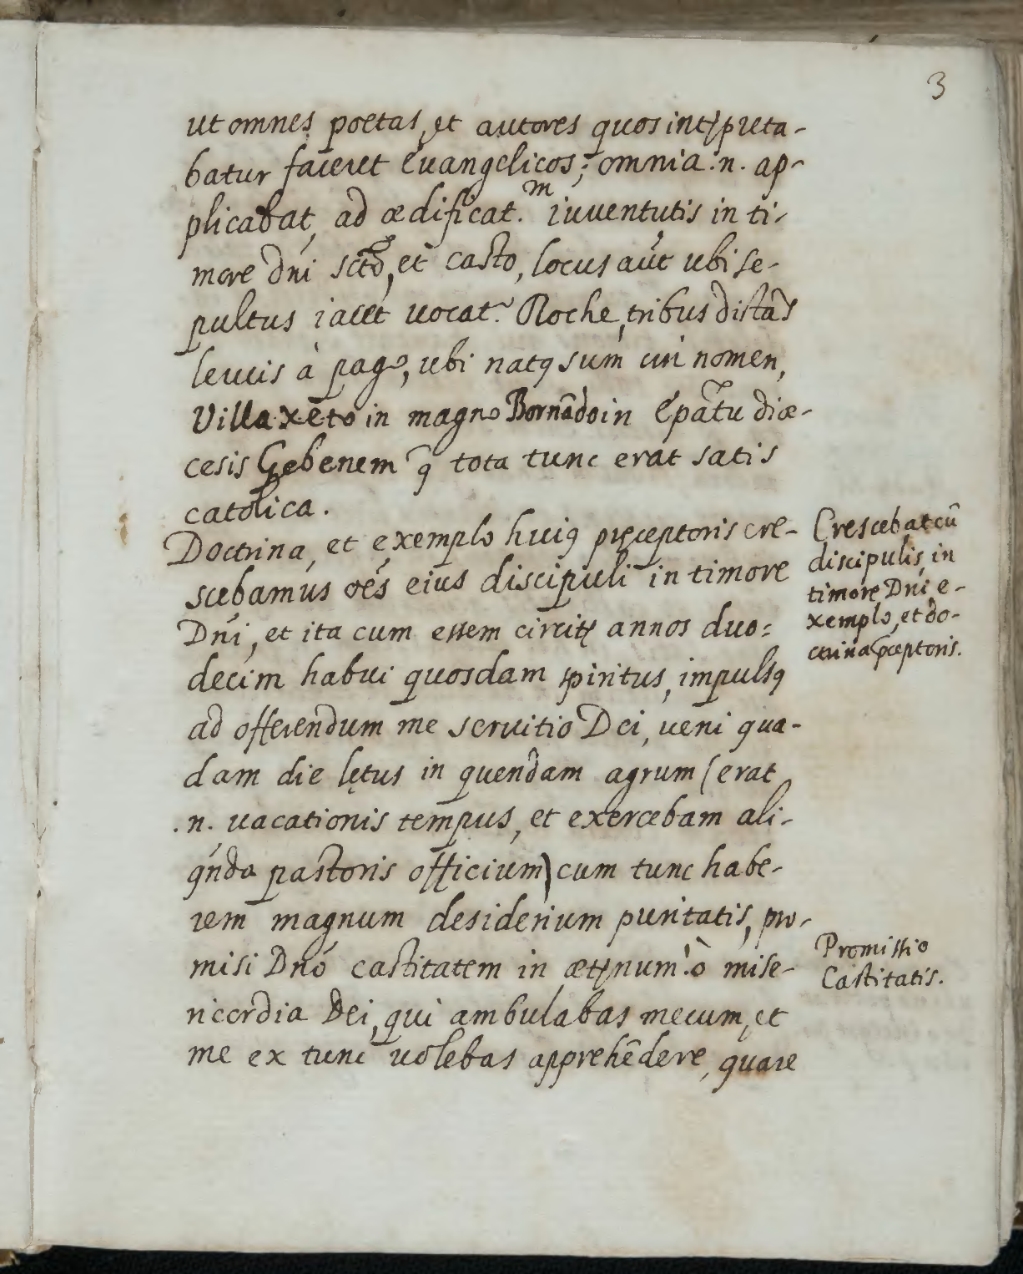 3
ut omnes poetas, et autores quos int̲p̲reta-
batur faceret Euangelicos; omnia .n. ap-
plicabat, ad ædificat.m iuuentutis in ti-
more Dn̄i sctō, et casto, locus aūt ubi se-
pultus iacet uocat.r Roche, tribus distās
leucis à pago, ubi natꝯ sum cui nomen,
Villaxēto in magno Bornādo in Epātu diœ-
cesis Gebenem̄ q̄ tota tunc erat satis
catolica.
Doctrina, et exemplo huiꝯ pręceptoris cre-
scebamus oēs eius discipuli in timore
Dn̄i, et ita cum essem circitꝭ annos duo=
decim habui quosdam spiritus, impulsꝯ
ad offerendum me seruitio Dei, ueni qua-
dam die lętus in quendam agrum (erat
.n. uacationis tempus, et exercebam ali-
qn̄do pastoris officium) cum tunc habe-
rem magnum desiderium puritatis, pro-
misi Dnō castitatem in ætꝭnum! ò mise-
ricordia Dei, qui ambulabas mecum, et
me ex tunc uolebas apprehēdere, quare
Crescebat cū
discipulis, in
timore Dn̄i, e-
xemplo, et do-
ctrina p̄ceptoris.
Promissio
Castitatis.